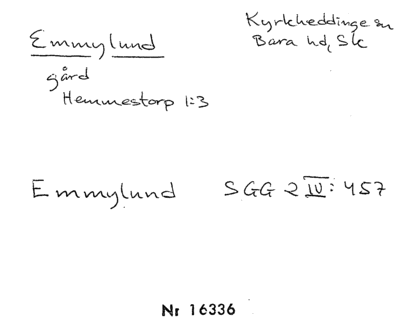 Emmylund
Kyrkheddinge sn
Bara hd, Sk
gård
Hemmestorp 1:3
Emmylund SGG 2 IV: 457
Nr 16336